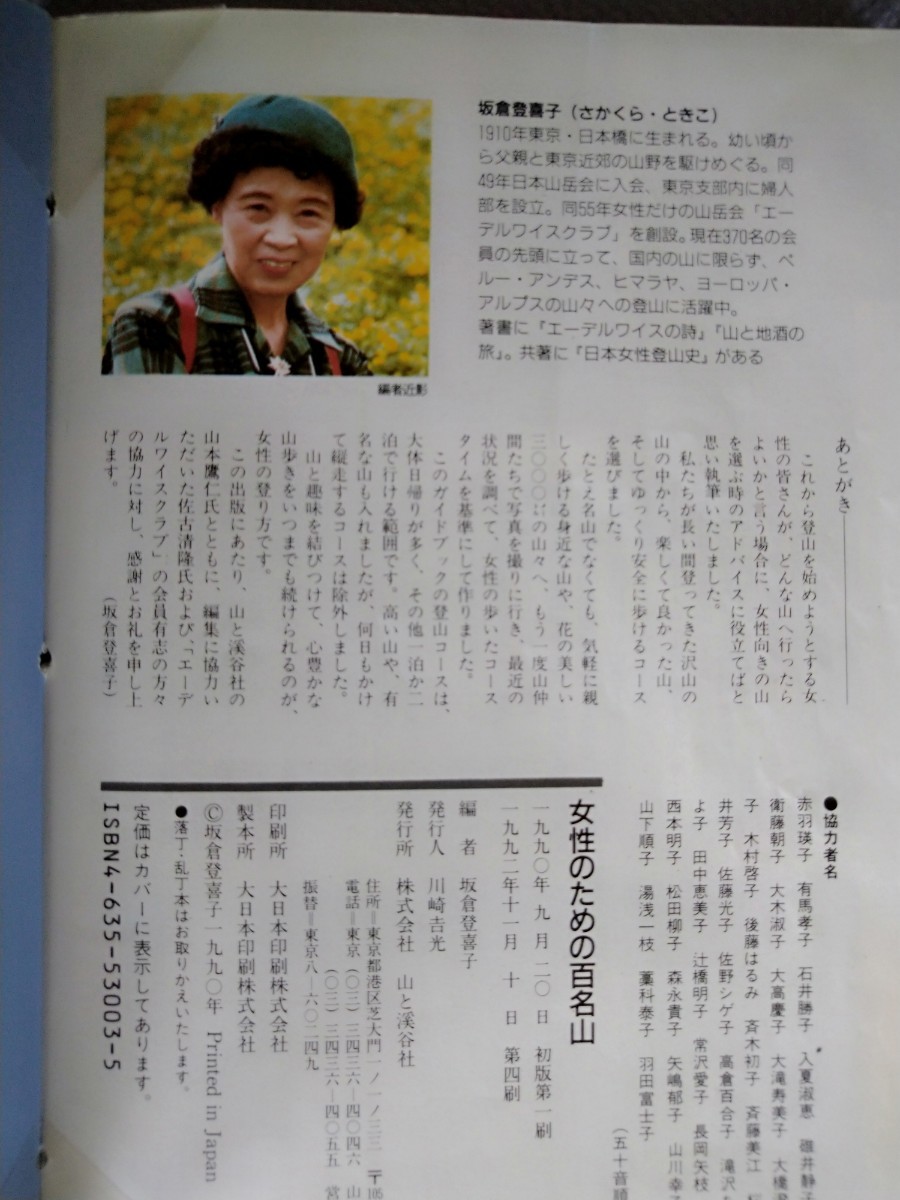 坂倉登喜子(さかくら・ときこ)
1910年東京・日本橋に生まれる。幼い頃か
ら父親と東京近郊の山野を駆けめぐる。同
49年日本山岳会に入会、東京支部内に婦人
部を設立。同55年女性だけの山岳会「エー
デルワイスクラブ」を創設。現在370名の会
員の先頭に立って、国内の山に限らず、ペ
ルー・アンデス、ヒマラヤ、ヨーロッパ・
アルプスの山々への登山に活躍中。
著書に「エーデルワイスの詩」「山と地酒の
旅」。共著に「日本女性登山史」がある
編者近影
あとがき
これから登山を始めようとする女
性の皆さんが、どんな山へ行ったら
よいかと言う場合に、女性向きの山
を選ぶ時のアドバイスに役立てばと
思い執筆いたしました。
私たちが長い間登ってきた沢山の
山の中から、楽しくて良かった山、
そしてゆっくり安全に歩けるコース
を選びました。
たとえ名山でなくても、気軽に親
しく歩ける身近な山や、花の美しい
三〇〇〇㍍の山々へ、もう一度山仲
間たちで写真を撮りに行き、最近の
状況を調べて、女性の歩いたコース
タイムを基準にして作りました。
このガイドブックの登山コースは、
大体日帰りが多く、その他一泊か二
泊で行ける範囲です。高い山や、有
名な山も入れましたが、何日もかけ
て縦走するコースは除外しました。
山と趣味を結びつけて、心豊かな
山歩きをいつまでも続けられるのが、
女性の登り方です。
この出版にあたり、山と渓谷社の
山本鷹仁氏とともに、編集に協力い
ただいた佐古清隆氏および、「エーデ
ルワイスクラブ」の会員有志の方々
の協力に対し、感謝とお礼を申し上
げます。
(坂倉登喜子)
●協力者名
赤羽瑛子 有馬孝子 石井勝子 入夏淑恵 碓井静子
衛藤朝子 大木淑子 大高慶子 大滝寿美子 大橋
子 木村啓子 後藤はるみ 斉木初子 斉藤美江
井芳子 佐藤光子 佐野シゲ子 高倉百合子 滝沢
よ子 田中恵美子 辻橋明子 常沢愛子 長岡矢枝
西本明子 松田柳子 森永貴子 矢嶋郁子 山川幸
山下順子 湯浅一枝 藁科泰子 羽田富士子
(五十音順
女性のための百名山
一九九〇年 九月二〇日 初版第一刷
一九九二年十一月 十 日 第四刷
編 者 坂倉登喜子
発行人 川崎吉光
発行所 株式会社 山と渓谷社
住所=東京都港区芝大門一ノ一ノ三三 〒105
電話=東京 (〇三)三四三六―四〇四六 山
(〇三)三四三六―四〇五五 営
振替=東京八―六〇二四九
印刷所 大日本印刷株式会社
製本所 大日本印刷株式会社
©坂倉登喜子一九九〇年 Printed in Japan
●落丁・乱丁本はお取りかえいたします。
定価はカバーに表示してあります。
ISBN4-635-53003-5